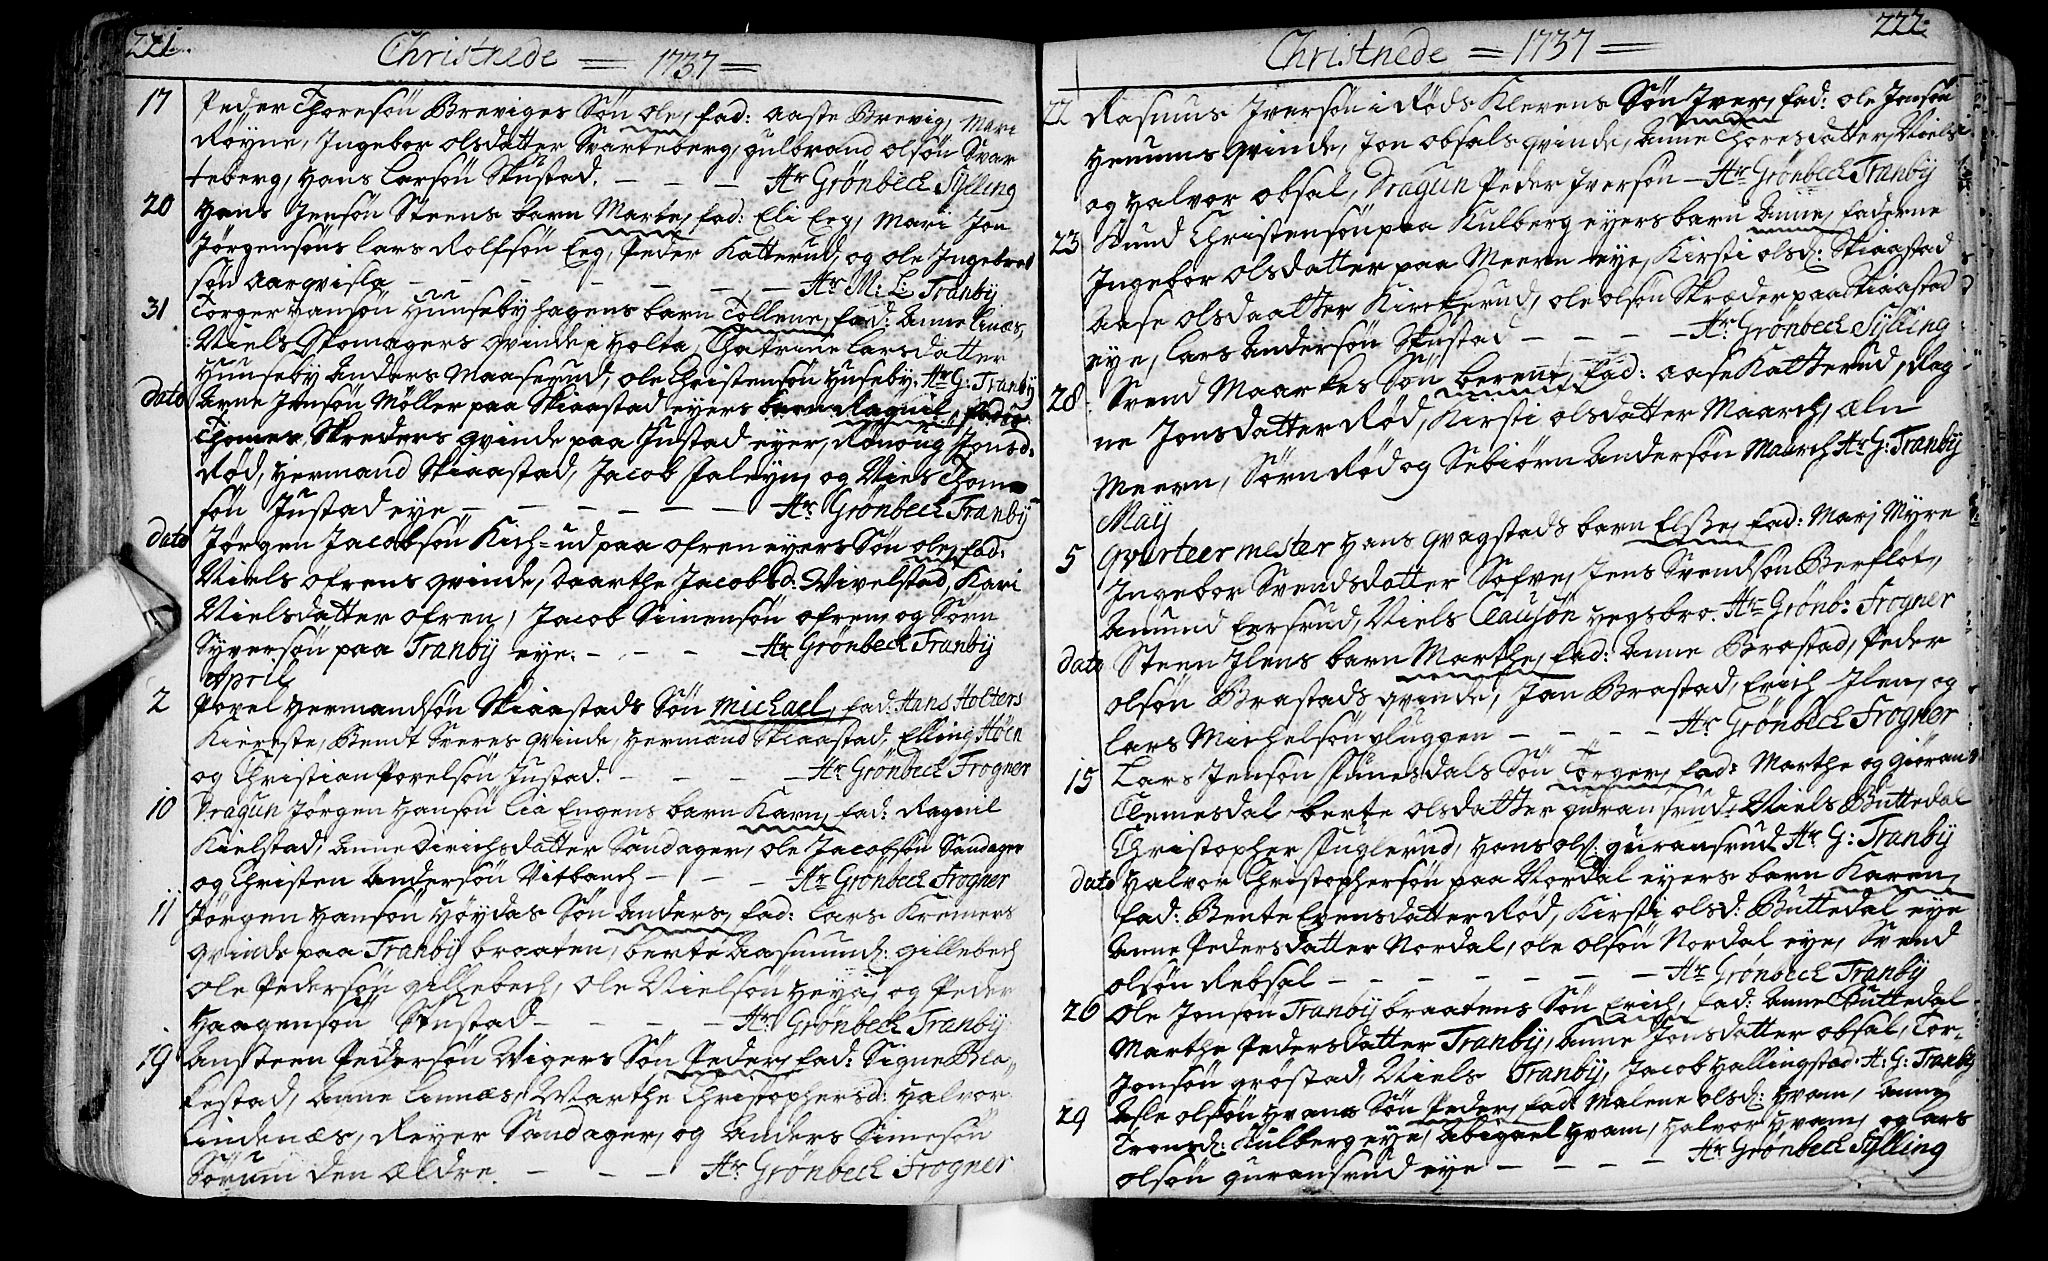 221.
Christnede = 1737 =
17 Peder Thoresøn Breviges Søn Ole, fad: Aaste Brevig, Mari
Røyne, Ingebor Olsdatter Svarteberg, Gulbrand Olsøn Svar
teberg, Hans Larsøn Skustad. — — — Hr Grønbech Sylling
20 Hans Jensøn Steens barn Marte, fad: Eli Eeg, Mari Jon
Jørgensøns Lars Rolfsøn Eeg, Peder Katterud, og Ole Ingebret
søn Aarqvisla — — — — — — Hr M: L: Tranby
31 Torger Hansøn Huuseby hagens barn Tollene, fad: Anne Linæs,
Niels Skomagers qvinde i Holta, Chatrine Larsdatter
Huuseby Anders Maaserud, Ole Christensøn Huseby. Hr G: Tranby
dato Arne Jensøn Møller paa Skiaastad eyers barn Raguil, fadre
Thomes Skreders qvinde paa Justad eyer, Rønoug Jonsd:
Rød, Hermand Skiaastad, Jacob Jaleyn, og Niels Thome
søn Justad eye — — — — — — Hr Grønbech Tranby
dato Jørgen Jacobsøn Kich=ud paa Ofren eyers Søn Ole, fad:
Niels Ofrens qvinde, Daarthe Jacobsd: Vivelstad, Kari
Nielsdatter Ofren, Jacob Simensøn Ofren og Sørn
Syversøn paa Tranby eye. — — — Hr Grønbech Tranby
April
2 Povel Hermandsøn Skiaastads Søn Michael, fad: Hans Holters
Kiereste, Bendt Sreres qvinde, Hermand Skiaastad, Elling Høen
og Christian Povelsøn Justad. — — — — Hr Grønbech Frogner
10 Dragun Jørgen Hansøn Lia Engens barn Karn, fad: Raguil
Kielstad, Anne Dirichsdatter Sandager, Ole Jacobsøn Sandager
og Christen Andersøn Vitbanch — — — Hr Grønbech Frogner
11 Jørgen Hansøn Høydas Søn Anders, fad: Lars Kremers
qvinde paa Tranby braaten, Berte Aasmund: Gillebech
Ole Pedersøn Gillebech, Ole Nielsøn Heya, og Peder
Haagensøn Skustad — — — — Hr: Grønbech Tranby
19 Ansteen Pedersøn Vigers Søn Peder, fad: Signe Bla,,
kestad, Anne Linnæs, Marthe Christophersd: Halvor
Lindenæs, Reyer Sandager, og Anders Simesøn
Sørum den ældre. — — — Hr Grønbech Frogner
222.
Christnede = 1737 =
22 Rasmus Iversøn i Røds Klevens Søn Iver, fad: Ole Jensøn
Henums qvinde, Jon Obsals qvinde, Anne Thoresdatter, Niels
og Halvor Obsal, Dragun Peder Iversøn — Hr Grønbech Tranby
23 Aund Christensøn paa Kulberg eyers barn Anne, faderne
Ingebor Olsdatter paa Meern eye, Kirsti Olsd: Skiaastad
Aase Olsdaatter Kirckerud, Ole Olsøn Skræder paa Skiaastad
eye, Lars Andersøn Skustad — — — — Hr Grønbech Sylling
28 Svend Maarkes Søn Berent, fad: Aase Katterud, Rag
ne Jonsdatter Rød, Kirsti Olsdatter Maarch, Æln
Meern, Sørn Rød og Sebiørn Andersøn Maarch Hr G: Tranby
May
5 Qvarteer mester Hans Qvagstads barn Elsse, fad: Mari Myre
Ingebor Svendsdatter Solve, Jens Svendsøn Berfløt,
Amund Eersrud, Niels Clausøn Hegsbro. Hr Grønb: Frogner
dato Steen Ilens barn Marthe, fad: Anne Brastad, Peder
Olsøn Brastads qvinde, Jan Brastad, Erich Ilen, og
Lars Michelsøn Pluggen — — — — Hr Grønbech Frogner
15 Lars Jensøn Funesdals Søn Torger, fad: Marthe og Giøran
Clemesdal Berte Olsdatter Guransrud. Niels Buttedal
Christopher Fuglerud, Hans Ols: Guransrud Hr G: Tranby
dato Halvor Christophersøn paa Nordal eyers barn Karen,
fad: Bente Evensdatter Rød, Kirsti Olsd: Buttedal eye
Anne Pedersdatter Nordal, Ole Olsøn Nordal eye, Svend
Olsøn Rebsal — — — — — — Hr Grønbech Tranby
26 Ole Jonsøn Tranby braatens Søn Erich, fad: Anne Buttedal
Marthe Pedersdatter Tranby, Anne Jonsdatter Obsal, Tor-
Jonsøn Grøstad, Niels Tranby, Jacob Hallingstad. H: G: Tranby
29 Asle Olsøn Hvams Søn Peder, fad: Malene Olsd: Hvam, Anne
Tronsd: Kulberg eye, Abigael Hvam, Halvor Hvam, og Lars
Olsøn Guransrud eye — — — — Hr Grønbech Sylling